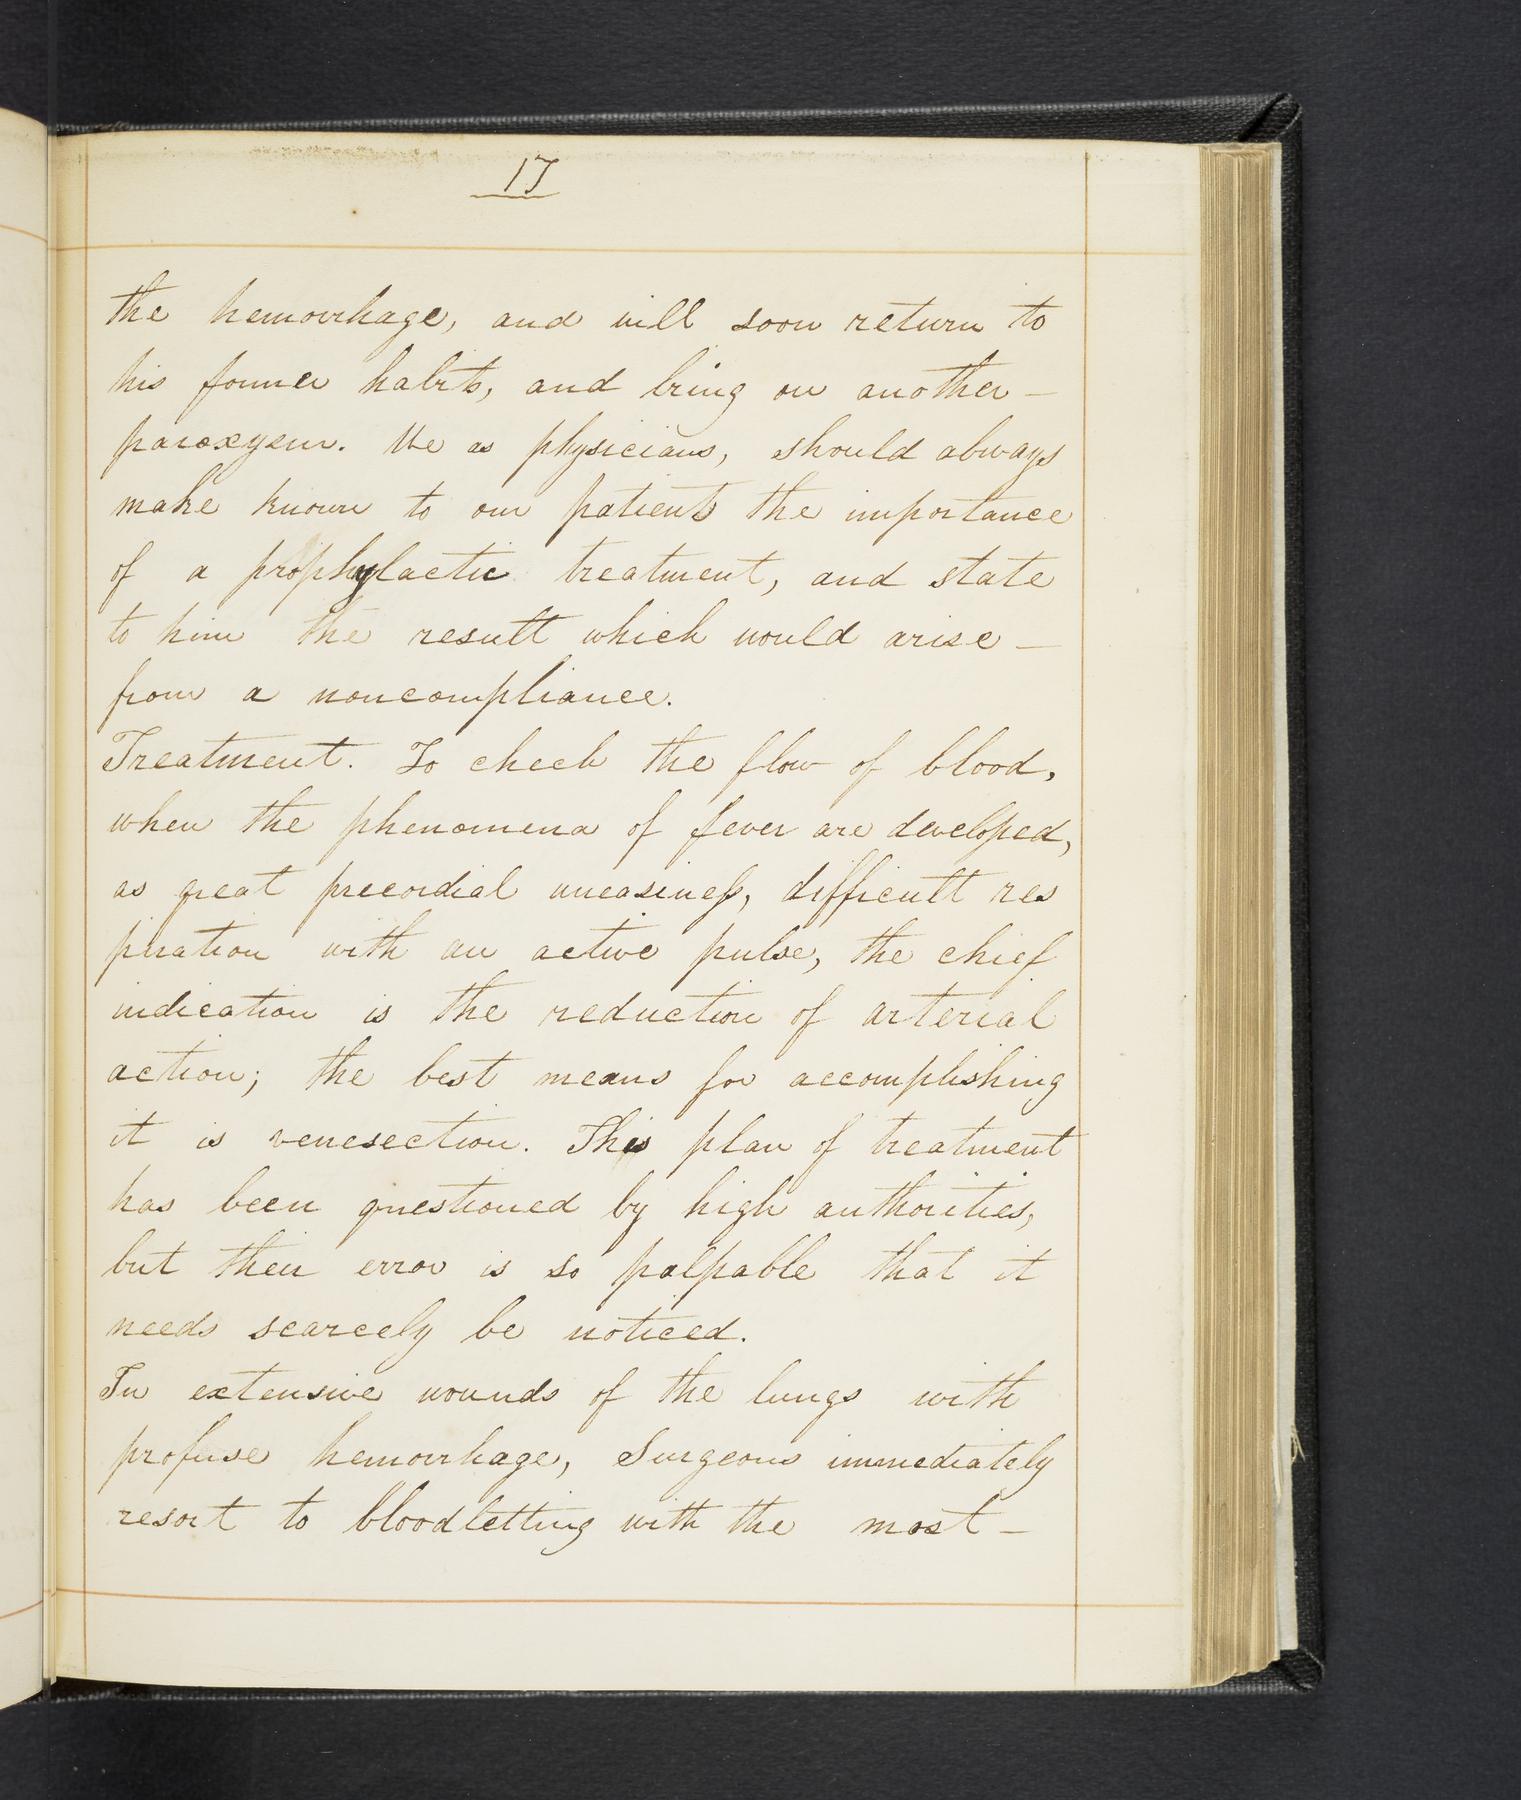 17
the hemorrhage, and will soon return to
his former habits, and bring on another –
paroxysm. We as physicians, should always
make known to our patients the importance
of a prophylactic treatment, and state
to him the result which would arise –
from a noncompliance.
Treatment. To check the flow of blood,
when the phenomena of fever are developed,
as great precordial uneasiness, difficult res
piration with an active pulse, the chief
indication is the reduction of arterial
action; the best means for accomplishing
it is venesection. This plan of treatment
has been questioned by high authorities,
but their error is so palpable that it
needs scarcely be noticed.
In extensive wounds of the lungs with
profuse hemorrhage, Surgeons immediately
resort to bloodletting with the most –